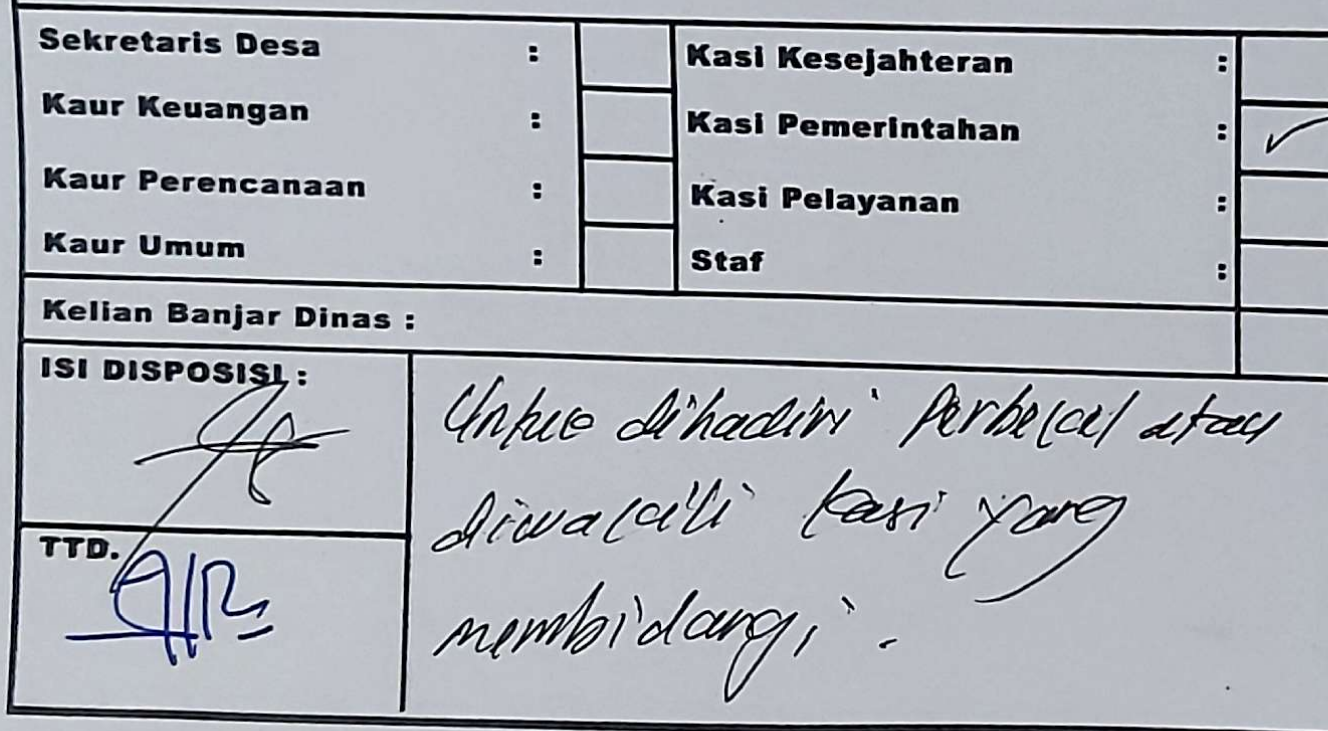 Sekretaris Desa :
Kaur Keuangan :
Kaur Perencanaan :
Kaur Umum :
Kasi Kesejahteran :
Kasi Pemerintahan : ✓
Kasi Pelayanan :
Staf :
Kelian Banjar Dinas :
ISI DISPOSISI :
Untuk dihadiri Perbekel atau
diwakili kasi yang
membidangi.
TTD.